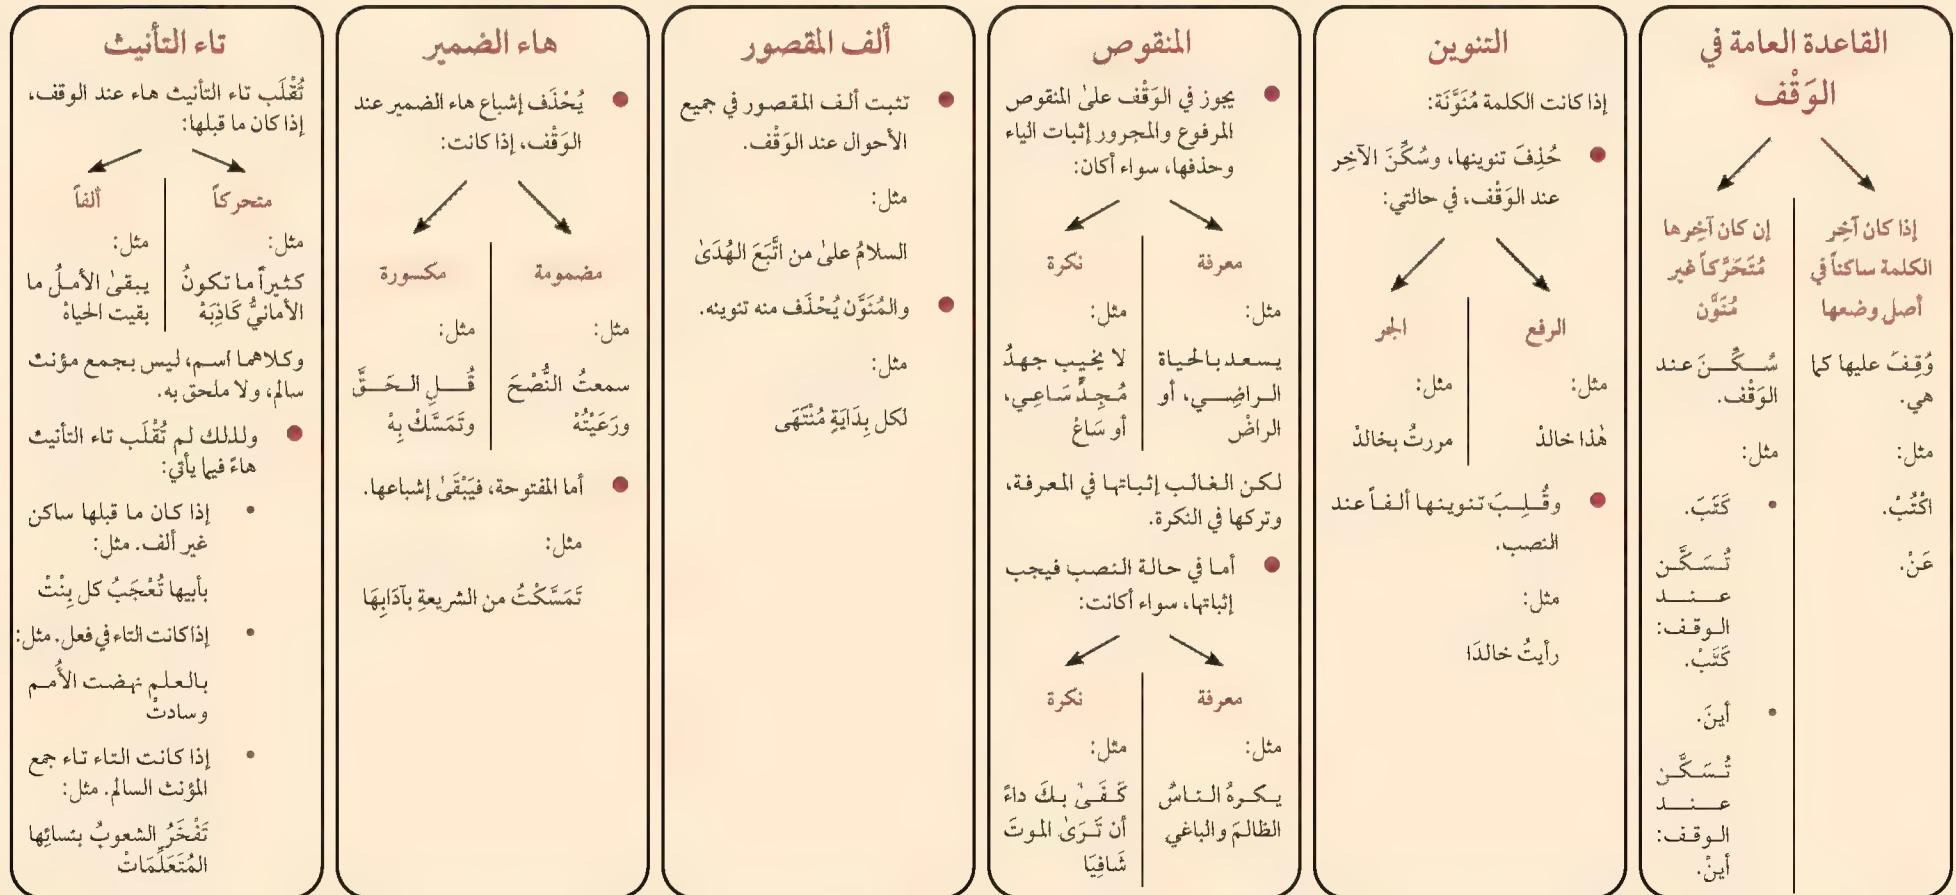 القاعدة العامة في
الوَقْف
إذا كان آخِر
الكلمة ساكناً في
أصل وضعها
وُقِفَ عليها كما
هي.
مثل:
اكْتُبْ.
عَنْ.
إن كان آخِرها
مُتَحَرِّكاً غير
مُنَوَّن
سُكِّنَ عند
الوَقْف.
مثل:
• كَتَبَ.
تُسَكَّن
عند
الوقف:
كَتَبْ.
• أينَ.
تُسَكَّن
عند
الوقف:
أينْ.
التنوين
إذا كانت الكلمة مُنَوَّنَة:
● حُذِفَ تنوينها، وسُكِّنَ الآخِر
عند الوَقْف، في حالتي:
الرفع
مثل:
هٰذا خالدْ
الجر
مثل:
مررتُ بخالدْ
● وقُلِبَ تنوينها ألفاً عند
النصب.
مثل:
رأيتُ خالدَا
المنقوص
● يجوز في الوَقْف علىٰ المنقوص
المرفوع والمجرور إثبات الياء
وحذفها، سواء أكان:
معرفة
مثل:
يسعد بالحياة
الراضِي، أو
الراضْ
نكرة
مثل:
لا يخيب جهدُ
مُجِدٍّ سَاعِي،
أو سَاعْ
لكن الغالب إثباتها في المعرفة،
وتركها في النكرة.
● أما في حالة النصب فيجب
إثباتها، سواء أكانت:
معرفة
مثل:
يكرهُ الناسُ
الظالمَ والباغي
نكرة
مثل:
كَفَىٰ بكَ داءً
أن تَرَىٰ الموتَ
شَافِيَا
ألف المقصور
● تثبت ألف المقصور في جميع
الأحوال عند الوَقْف.
مثل:
السلامُ علىٰ من اتَّبَعَ الهُدَىٰ
● والمُنَوَّن يُحْذَف منه تنوينه.
مثل:
لكل بِدَايَةٍ مُنْتَهَى
هاء الضمير
● يُحْذَف إشباع هاء الضمير عند
الوَقْف، إذا كانت:
مضمومة
مثل:
سمعتُ النُّصْحَ
ورَعَيْتُهْ
مكسورة
مثل:
قُلِ الحَقَّ
وتَمَسَّكْ بِهْ
● أما المفتوحة، فيَبْقَىٰ إشباعها.
مثل:
تَمَسَّكْتُ من الشريعةِ بآدَابِهَا
تاء التأنيث
تُقْلَب تاء التأنيث هاء عند الوقف،
إذا كان ما قبلها:
متحركاً
مثل:
كثيراً ما تكونُ
الأمانيُّ كَاذِبَهْ
ألفاً
مثل:
يبقىٰ الأملُ ما
بقيت الحياهْ
وكلاهما اسم، ليس بجمع مؤنث
سالم، ولا ملحق به.
● ولذلك لم تُقْلَب تاء التأنيث
هاءً فيما يأتي:
• إذا كان ما قبلها ساكن
غير ألف. مثل:
بأبيها تُعْجَبُ كل بِنْتْ
• إذا كانت التاء في فعل. مثل:
بالعلم نهضت الأُمم
وسادتْ
• إذا كانت التاء تاء جمع
المؤنث السالم. مثل:
تَفْخَرُ الشعوبُ بنسائِها
المُتَعَلِّمَاتْ